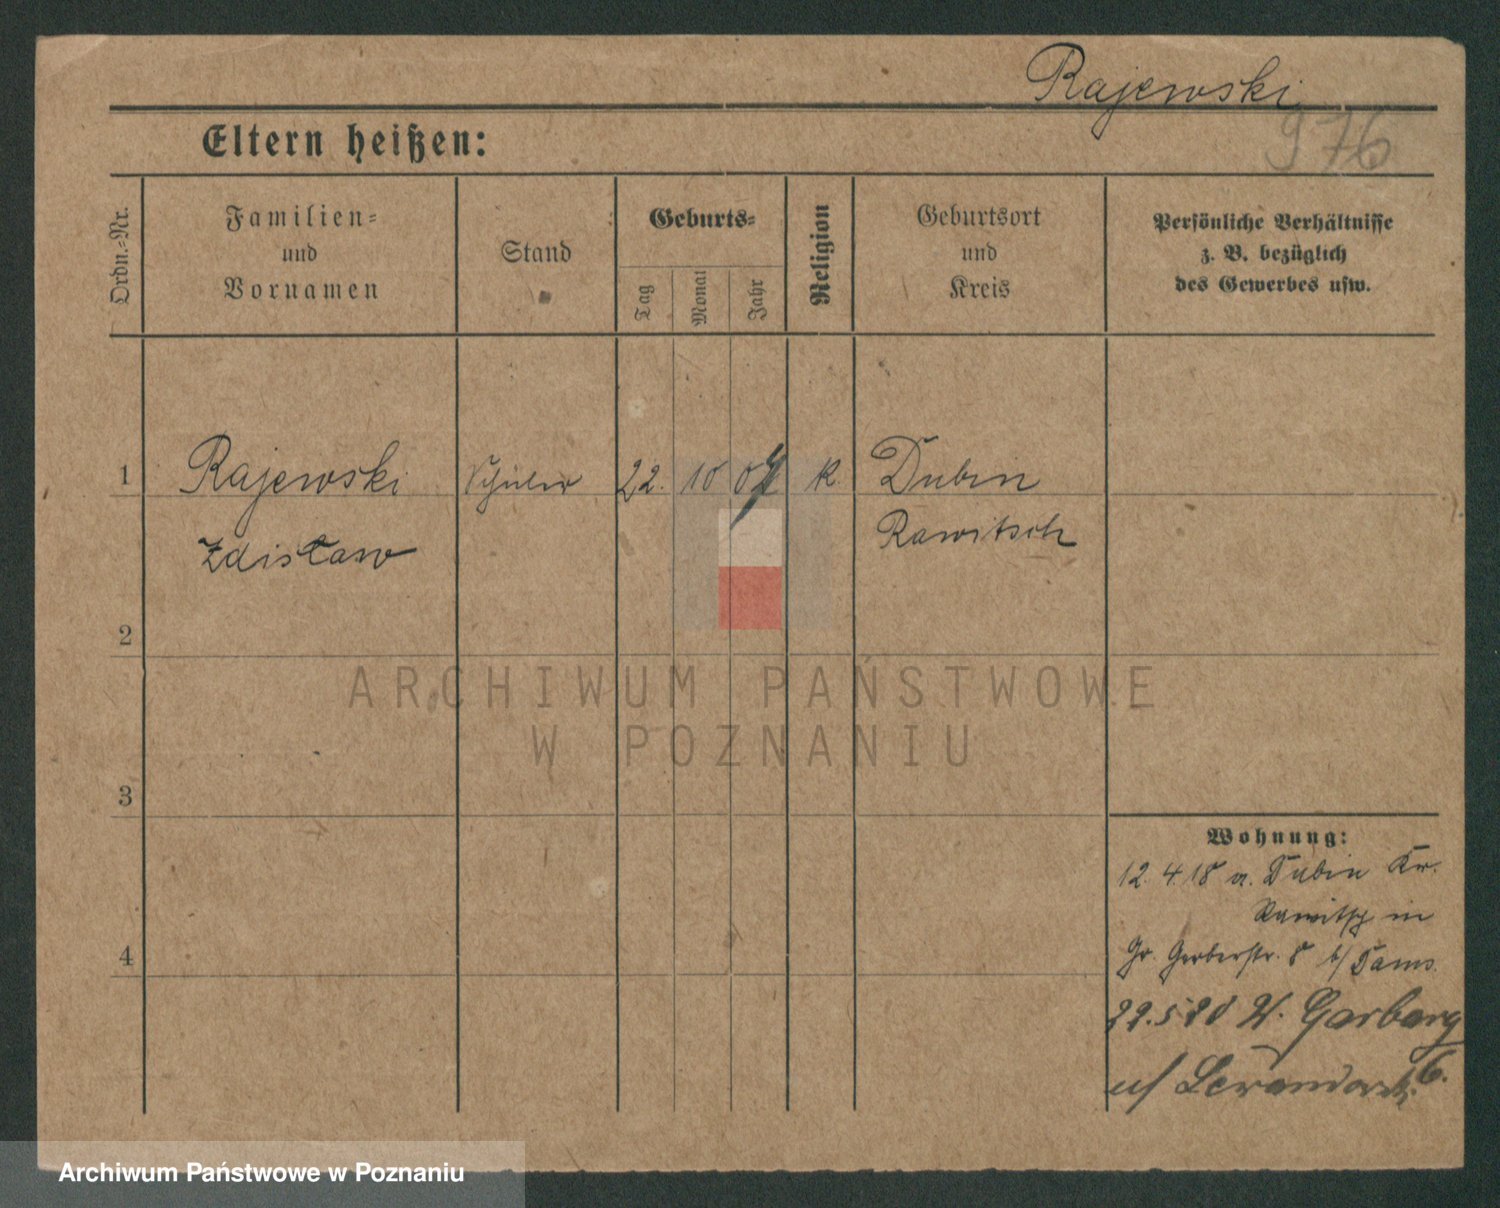 Rajewski
976
Eltern heißen:
Ordn.-Nr.
Familien- und Vornamen
Stand
Geburts-
Tag
Monat
Jahr
Religion
Geburtsort und Kreis
Persönliche Verhältnisse
z. B. bezüglich
des Gewerbes usw.
1
Rajewski
Schüler
22.
10
07
k.
Dubin
Zdisław
Rawitsch
2
ARCHIWUM PAŃSTWOWE
W POZNANIU
3
Wohnung:
12. 4. 18 v. Dubin Kr.
Rawitsch in
4
Gr. Gerberstr. 8 b/
22.5.20 W. Garbary
u/
Archiwum Państwowe w Poznaniu